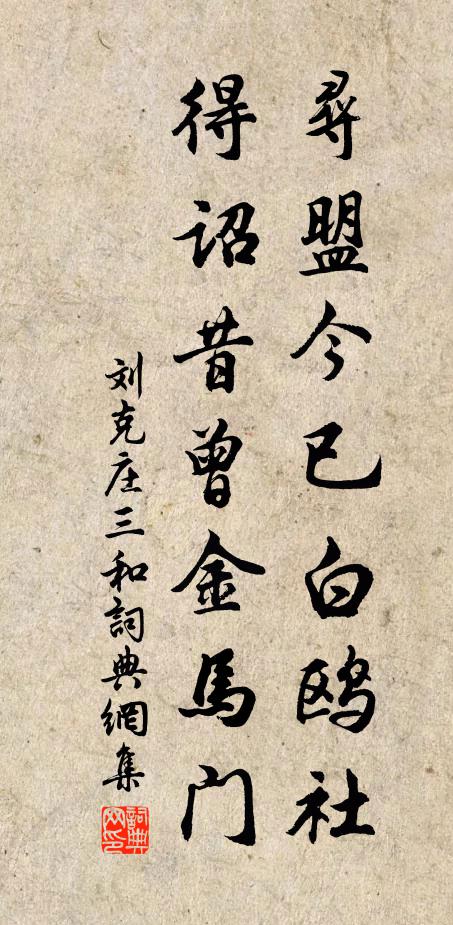 尋盟今已白鸥社
得诏昔曾金馬门
刘克庄三和詞典網集
詞典网印